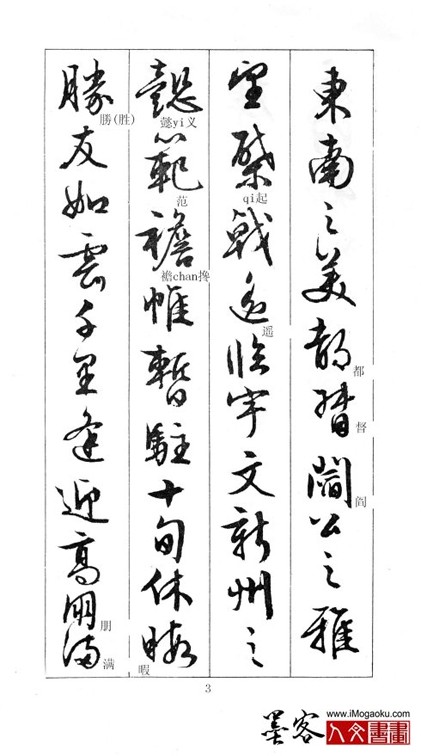 東南之美都督閻公之雅
都
督
阎
望棨戟遥臨宇文新州之
qi起
遥
懿範襜帷暫駐十旬休暇
懿yi义
范
襜chan搀
暇
勝友如雲千里逢迎高朋満
勝(胜)
朋
满
3
墨客
www.iMogaoku.com
人文書画